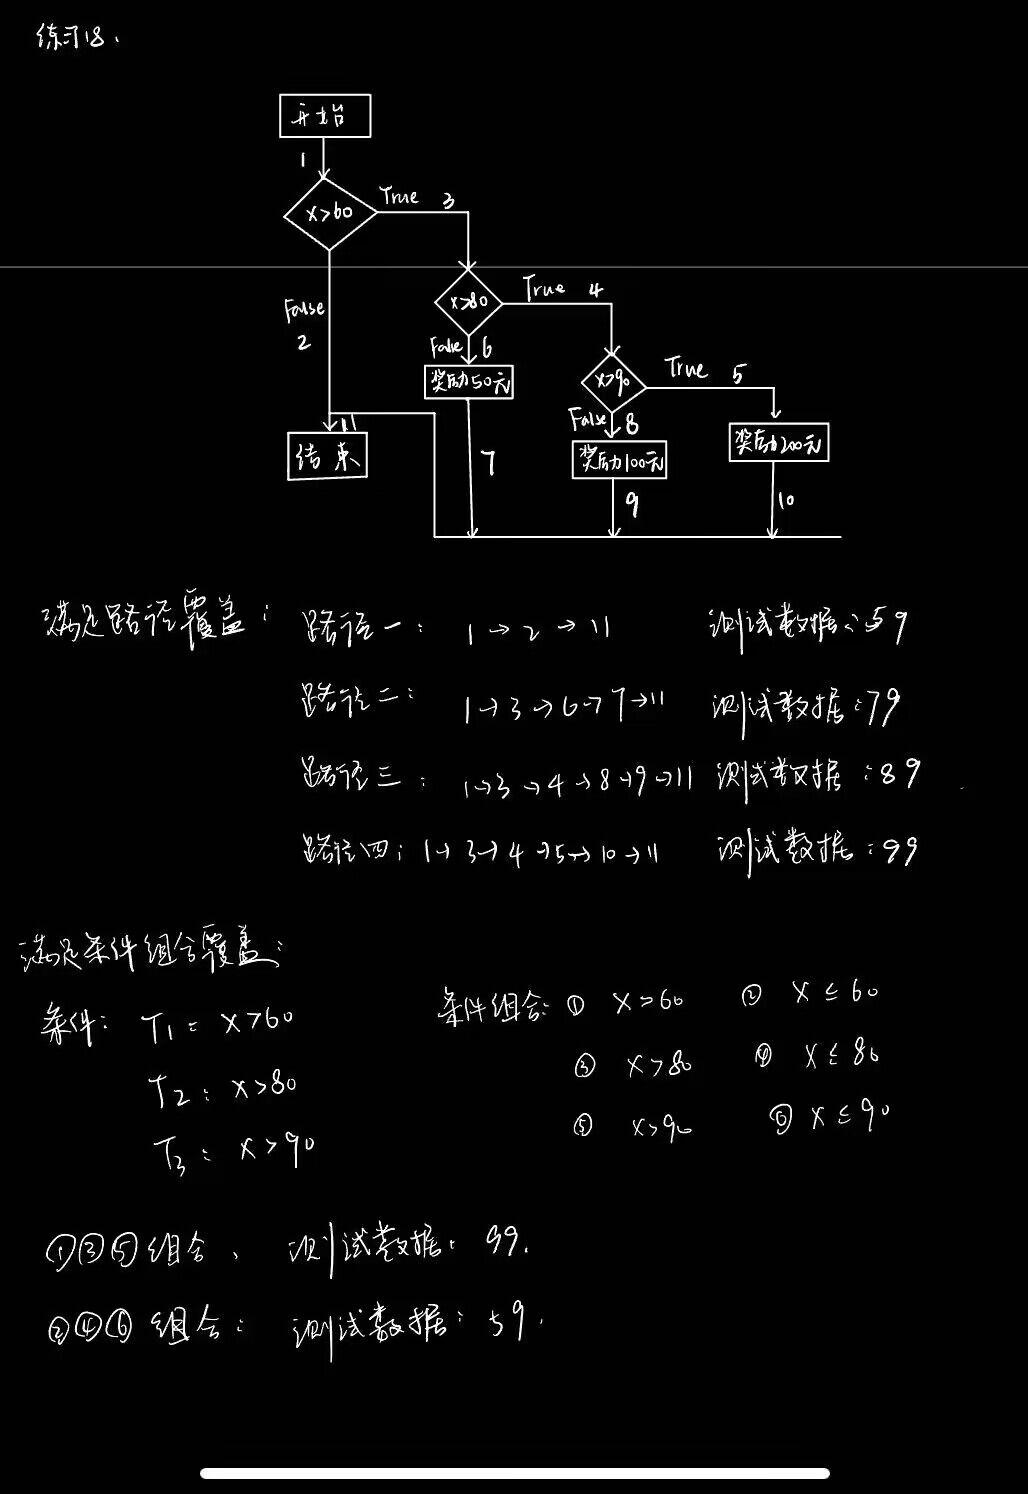 练习18.
开始
1
x>60
True 3
False
2
x>80
True 4
False 6
奖励50元
x>90
True 5
False 8
奖励100元
奖励200元
11
结束
7
9
10
满足路径覆盖:
路径一: 1→2→11 测试数据:59
路径二: 1→3→6→7→11 测试数据:79
路径三: 1→3→4→8→9→11 测试数据:89
路径四: 1→3→4→5→10→11 测试数据:99
满足条件组合覆盖:
条件: T1: x>60 条件组合: ① x>60 ② x≤60
T2: x>80 ③ x>80 ④ x≤80
T3: x>90 ⑤ x>90 ⑥ x≤90
①③⑤组合、 测试数据: 99.
②④⑥组合: 测试数据: 59.